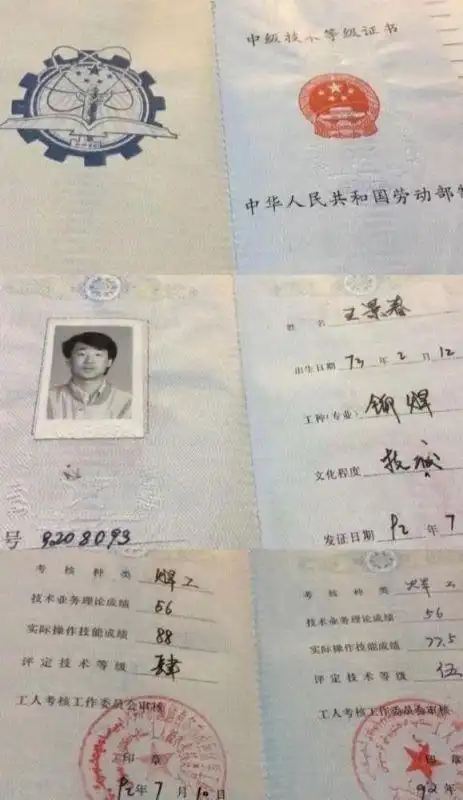 中级技术等级证书
中华人民共和国劳动部制
姓名 王景春
出生日期 73年2月12
工种(专业) 铆焊
文化程度 技
发证日期 92年7
号 9208093
考核种类 焊工
技术业务理论成绩 56
实际操作技能成绩 88
评定技术等级 肆
工人考核工作委员会审核
印章
92年7月10日
考核种类 焊工
技术业务理论成绩 56
实际操作技能成绩 77.5
评定技术等级 伍
工人考核工作委员会审核
印章
92年